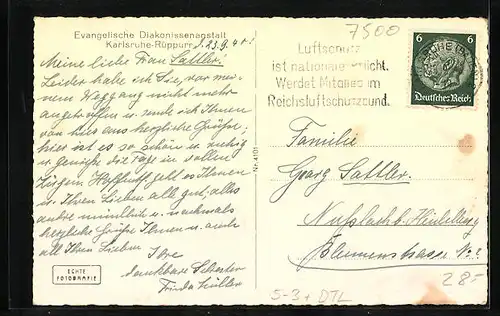 Evangelische Diakonissenanstalt
Karlsruhe-Rüppurr, d. 23.9.40.
Meine liebe Frau Sattler!
Leider habe ich Sie, vor mei-
nem Weggang nicht mehr
angetroffen u. sende ich Ihnen
von hier aus herzliche Grüße;
hier ist es so schön u. ruhig
u. genieße die Tage in vollen
Zügen. Hoffentl. geht es Ihnen
u. Ihren Lieben alle gut; alles
andre mündlich u. nochmals
herzliche Grüße Ihnen u. auch
all Ihren Lieben
Ihre
dankbare Schwester
Frieda
ECHTE
FOTOGRAFIE
Nr. 4101
7500
Luftschutz
ist nationale Pflicht.
Werdet Mitglied im
Reichsluftschutzbund.
6 6
Deutsches Reich
Familie
Georg Sattler.
Nußloch b. Heidelberg
Blumenstrasse No
28.-
S-3+ DTL